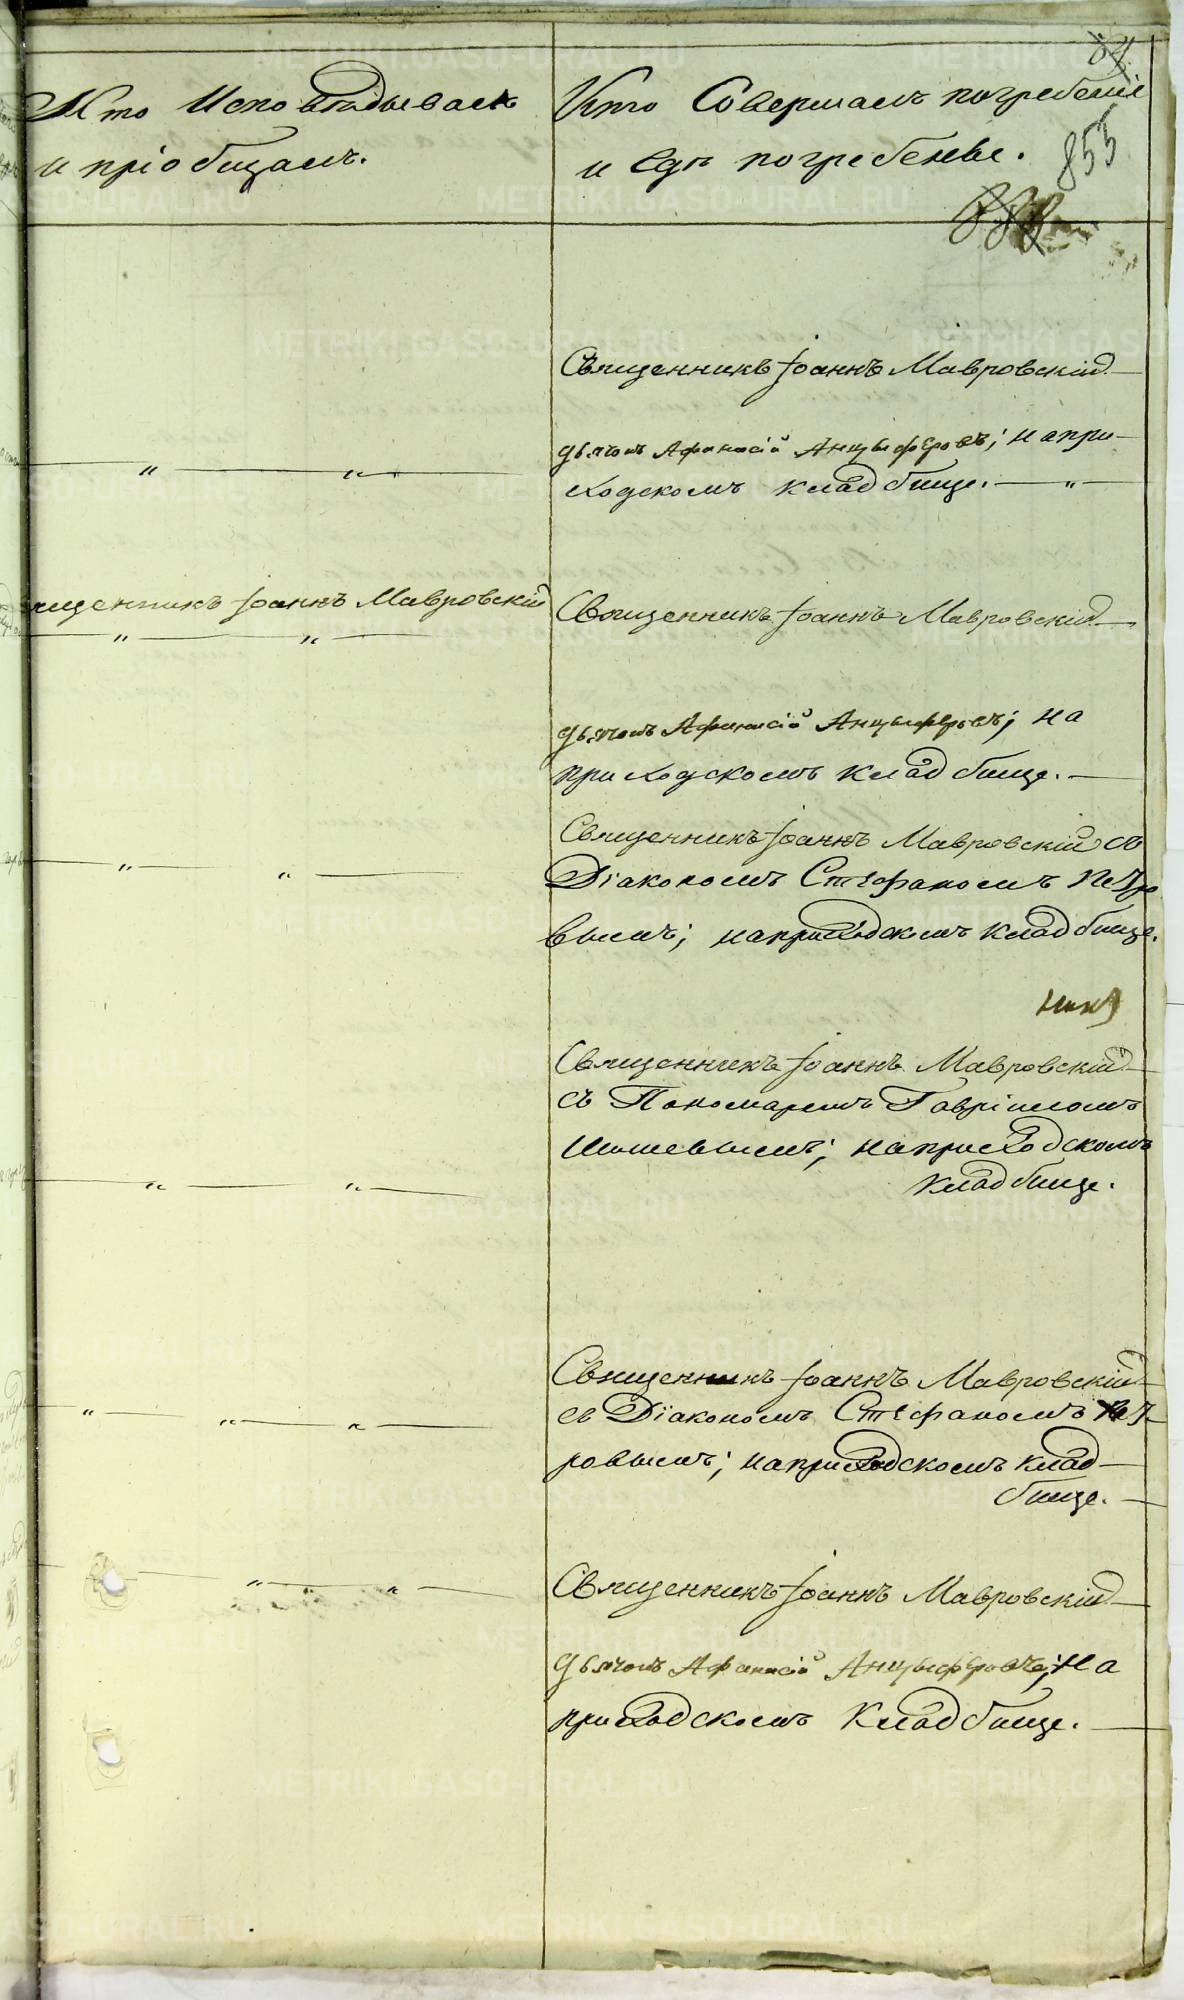 Кто Исповѣдывалъ
и пріобщалъ.
Кто Совершалъ погребеніе
и Гдѣ погребены.
855
Священникъ Іоаннъ Мавровскій
дьячокъ Афанасій Анцыферовъ; на при-
ходскомъ кладбище. — „ —
— „ — „ —
Священникъ Іоаннъ Мавровскій
— „ — „ —
Священникъ Іоаннъ Мавровскій
дьячокъ Афанасій Анцыферовъ; на
приходскомъ кладбище. —
— „ — „ —
Священникъ Іоаннъ Мавровскій съ
Діакономъ Стефаномъ Петро
вымъ; на приходскомъ кладбище.
Священникъ Іоаннъ Мавровскій
съ Пономаремъ Гавріиломъ
на приходскомъ
кладбище.
— „ — „ —
Священникъ Іоаннъ Мавровскій
съ Діакономъ Стефаномъ Пет-
ровымъ; на приходскомъ клад-
бище. —
„ — „ — „ —
Священникъ Іоаннъ Мавровскій
— „ — „ —
дьячокъ Афанасій Анцыферовъ; на
приходскомъ Кладбище. —
METRIKI.GASO-URAL.RU